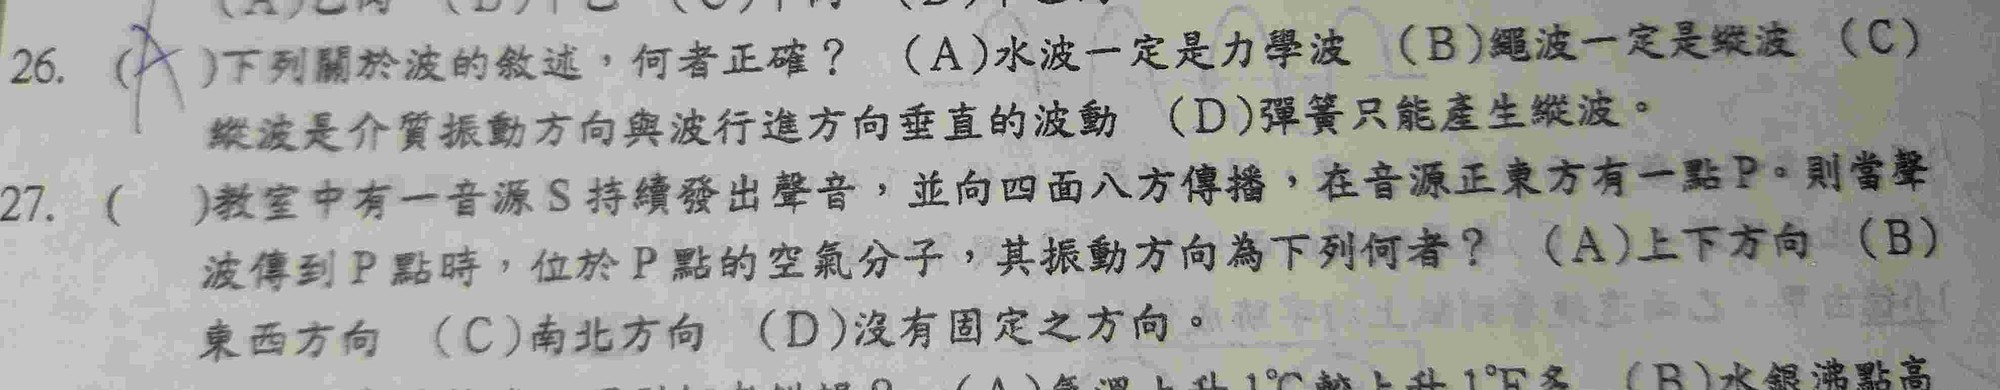 26. (A)下列關於波的敘述，何者正確？ (A)水波一定是力學波 (B)繩波一定是縱波 (C)
縱波是介質振動方向與波行進方向垂直的波動 (D)彈簧只能產生縱波。
27. ( )教室中有一音源S持續發出聲音，並向四面八方傳播，在音源正東方有一點P。則當聲
波傳到P點時，位於P點的空氣分子，其振動方向為下列何者？ (A)上下方向 (B)
東西方向 (C)南北方向 (D)沒有固定之方向。
(A)氣溫上升1℃較上升1℉多 (B)水銀沸點高